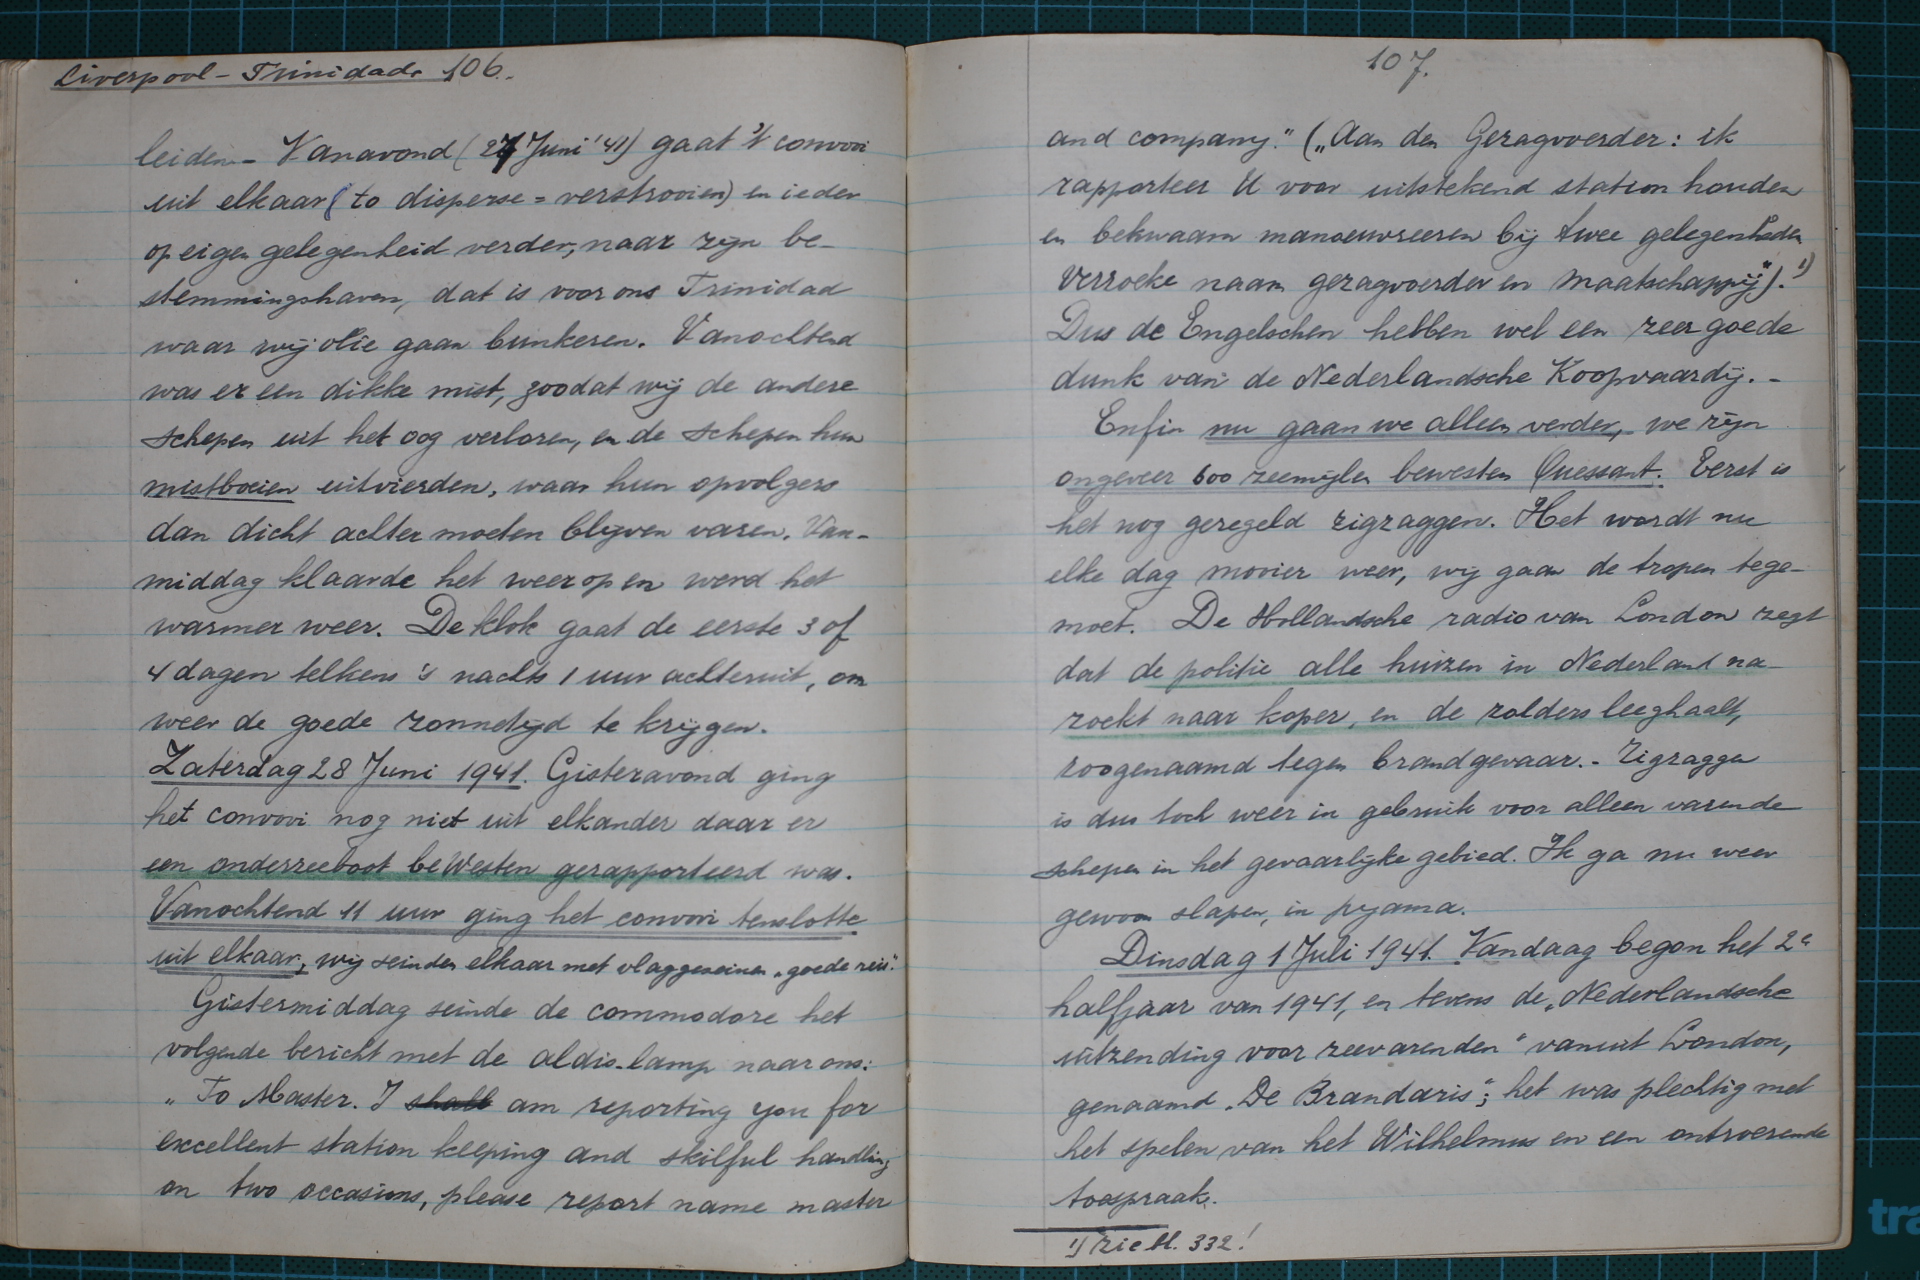 Liverpool – Trinidad. 106.
leiden. – Vanavond (27 Juni '41) gaat 't convooi
uit elkaar (to disperse = verstrooien) en ieder
op eigen gelegenheid verder, naar zijn be-
stemmingshaven, dat is voor ons Trinidad
waar wij olie gaan bunkeren. Vanochtend
was er een dikke mist, zoodat wij de andere
schepen uit het oog verloren, en de schepen hun
mistboeien uitvierden, waar hun opvolgers
dan dicht achter moeten blijven varen. Van-
middag klaarde het weer op en werd het
warmer weer. De klok gaat de eerste 3 of
4 dagen telkens 's nachts 1 uur achteruit, om
weer de goede zonnetijd te krijgen.
Zaterdag 28 Juni 1941. Gisteravond ging
het convooi nog niet uit elkander daar er
een onderzeeboot beWesten gerapporteerd was.
Vanochtend 11 uur ging het convooi tenslotte
uit elkaar, wij seinden elkaar met vlaggeseinen „goede reis".
Gistermiddag seinde de commodore het
volgende bericht met de aldis-lamp naar ons:
„To Master. I shall am reporting you for
excellent station keeping and skilful handling
on two occasions, please report name master
107.
and company." („Aan den Gezagvoerder: ik
rapporteer U voor uitstekend station houden
en bekwaam manoeuvreeren bij twee gelegenheden
verzoeke naam gezagvoerder en maatschappij"). 1)
Dus de Engelschen hebben wel een zeer goede
dunk van de Nederlandsche Koopvaardij. –
Enfin nu gaan we alleen verder, we zijn
ongeveer 600 zeemijlen bewesten Quessant. Eerst is
het nog geregeld zigzaggen. Het wordt nu
elke dag mooier weer, wij gaan de tropen tege-
moet. De Hollandsche radio van London zegt
dat de politie alle huizen in Nederland na-
zoekt naar koper, en de zolders leeghaalt,
zoogenaamd tegen brandgevaar. – Zigzaggen
is dus toch weer in gebruik voor alleen varende
schepen in het gevaarlijke gebied. Ik ga nu weer
gewoon slapen, in pyama.
Dinsdag 1 Juli 1941. Vandaag begon het 2e
halfjaar van 1941, en tevens de „Nederlandsche
uitzending voor zeevarenden" vanuit London,
genaamd „De Brandaris"; het was plechtig met
het spelen van het Wilhelmus en een ontroerende
toespraak.
1) Zie bl. 332!
tra